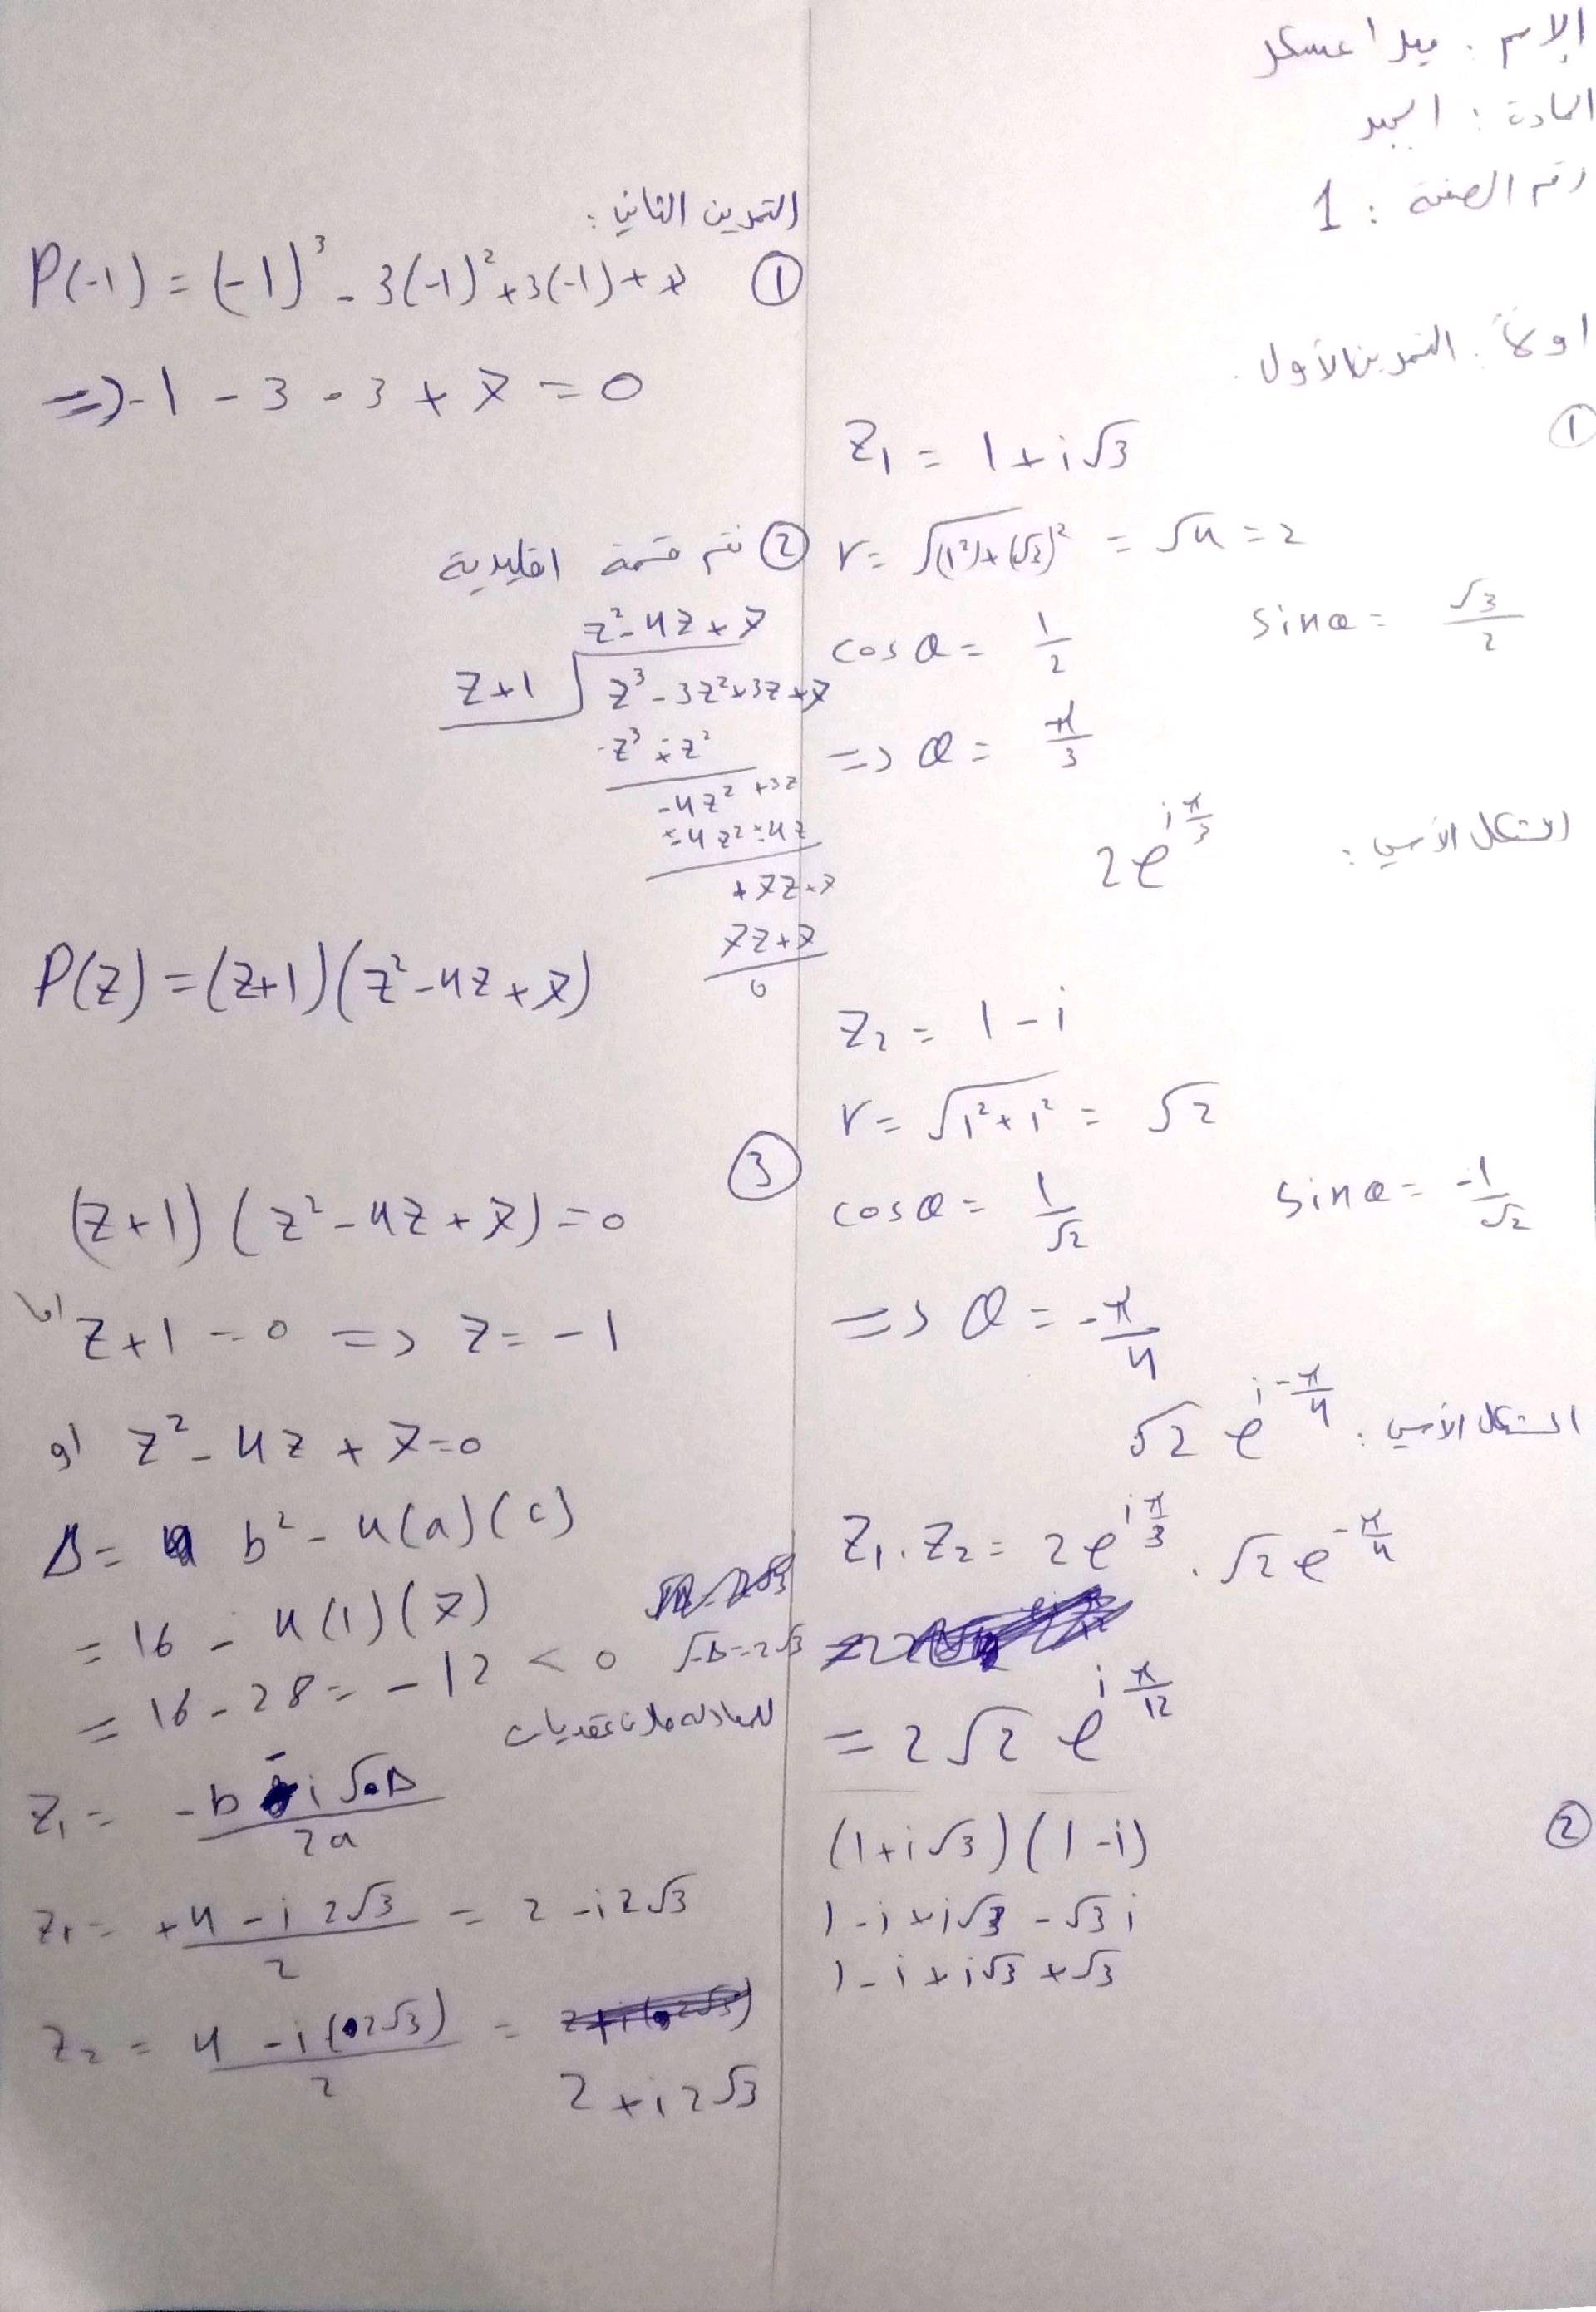 الإسم : ميرا عسكر
المادة : الجبر
رقم الصفحة : 1
اولاً : التمرين الأول
①
Z₁ = 1 + i√3
r = √((1²) + (√3)²) = √4 = 2
cos θ = 1/2    sin θ = √3/2
=> θ = π/3
الشكل الأسي : 2e^(iπ/3)
Z₂ = 1 - i
r = √(1² + 1²) = √2
cos θ = 1/√2    sin θ = -1/√2
=> θ = -π/4
الشكل الأسي : √2 e^(i-π/4)
Z₁ . Z₂ = 2e^(iπ/3) . √2 e^(-π/4)
= 2√2 e^(iπ/12)
②
(1 + i√3)(1 - i)
1 - i + i√3 - √3 i
1 - i + i√3 + √3
التمرين الثاني :
① P(-1) = (-1)³ - 3(-1)² + 3(-1) + 7
=> -1 - 3 - 3 + 7 = 0
② نقسم قسمة اقليدية
z² - 4z + 7
z + 1
z³ - 3z² + 3z + 7
-z³ ± z²
-4z² + 3z
-4z² - 4z
+7z + 7
7z + 7
0
P(z) = (z+1)(z² - 4z + 7)
③
(z + 1)(z² - 4z + 7) = 0
اما z + 1 = 0 => z = -1
او z² - 4z + 7 = 0
Δ = b² - 4(a)(c)
= 16 - 4(1)(7)
= 16 - 28 = -12 < 0    √-Δ = 2√3
للمعادلة حلان عقديان
Z₁ = (-b - i√-Δ)/2a
Z₁ = (+4 - i 2√3)/2 = 2 - i2√3
Z₂ = (4 - i(2√3))/2 =
2 + i2√3